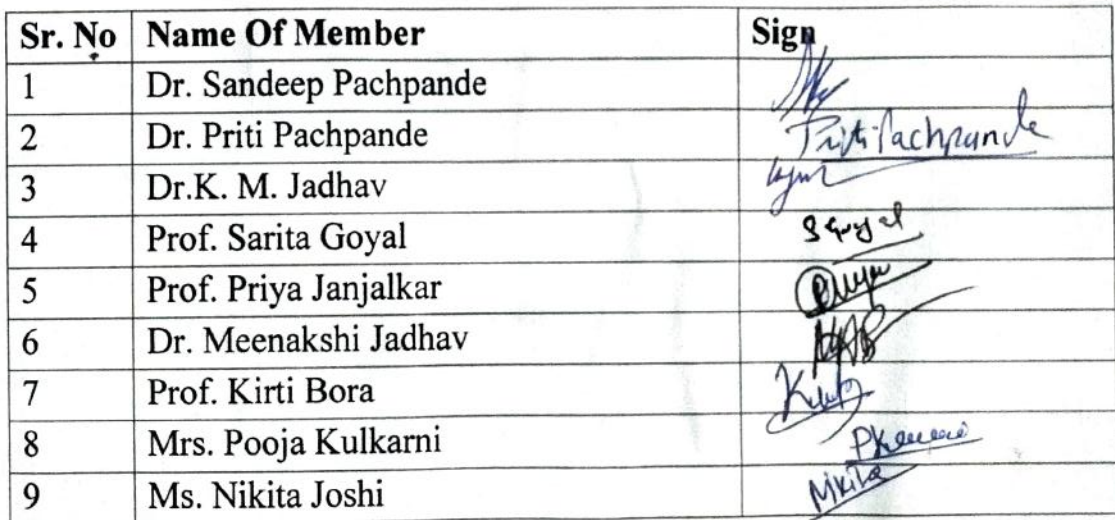 Sr. No Name Of Member Sign
1 Dr. Sandeep Pachpande
2 Dr. Priti Pachpande Priti Pachpande
3 Dr.K. M. Jadhav
4 Prof. Sarita Goyal SGoyal
5 Prof. Priya Janjalkar
6 Dr. Meenakshi Jadhav
7 Prof. Kirti Bora
8 Mrs. Pooja Kulkarni
9 Ms. Nikita Joshi Nikita